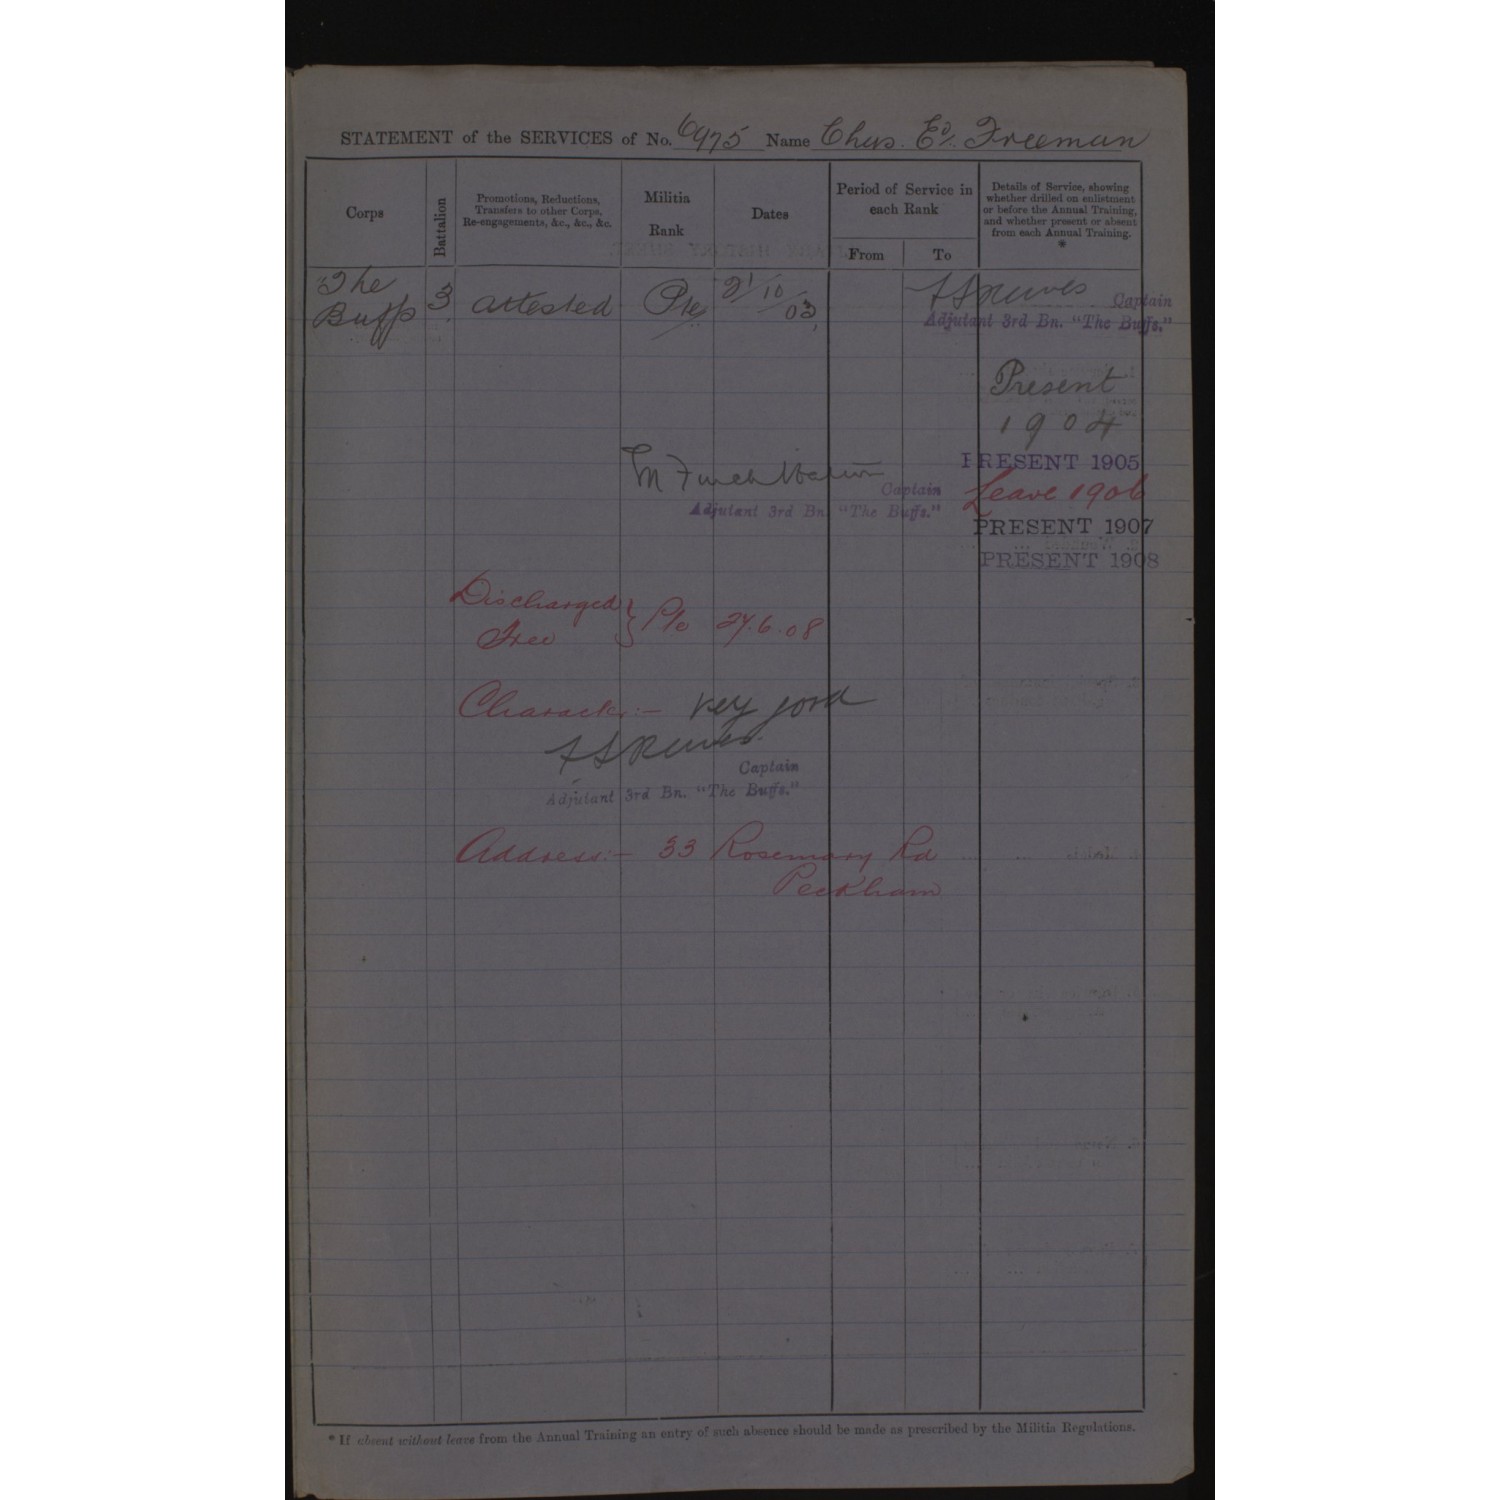 STATEMENT of the SERVICES of No. 6975 Name Chas. Ed. Freeman
Corps
Battalion
Promotions, Reductions,
Transfers to other Corps,
Re-engagements, &c., &c., &c.
Militia
Rank
Dates
Period of Service in
each Rank
From To
Details of Service, showing
whether drilled on enlistment
or before the Annual Training,
and whether present or absent
from each Annual Training.
*
The
Buffs 3 attested Pte 21/10/03
Captain
Adjutant 3rd Bn. "The Buffs."
Present
1904
PRESENT 1905
Captain
Adjutant 3rd Bn. "The Buffs."
Leave 1906
PRESENT 1907
PRESENT 1908
Discharged
Free } Pte 27.6.08
Character:- Very good
Captain
Adjutant 3rd Bn. "The Buffs."
Address:- 33 Rosemary Rd
Peckham
* If absent without leave from the Annual Training an entry of such absence should be made as prescribed by the Militia Regulations.